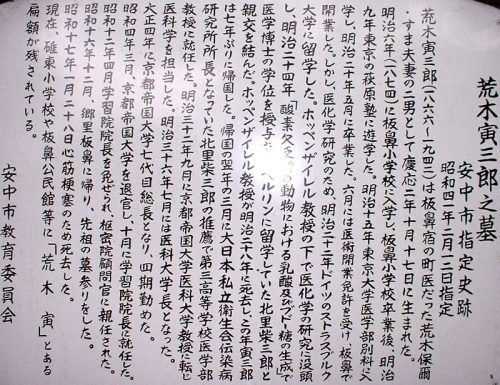 荒木寅三郎之墓
安中市指定史跡
昭和四十年二月二日指定
荒木寅三郎(一八六六〜一九四二)は板鼻宿の町医だった荒木保爾
・すま夫妻の二男として慶応二年十月十七日に生まれた。
明治六年(一八七四)に板鼻小学校に入学し、板鼻小学校卒業後、明治
九年東京の萩原塾に遊学した。明治十五年、東京大学医学部別科に入
学し、明治二十年五月に卒業した。六月には医術開業免許を受け、板鼻で
開業した。しかし、医化学研究のため、明治二十二年ドイツのストラスブルク
大学に留学した。ホッペンザイレル教授の下で医化学の研究に没頭
し、明治二十四年「酸素欠 動物における乳酸及ブドー糖の生成」で
医学博士の学位を授与さ ベルリンに留学していた北里柴三郎と
親交を結んだ。ホッペンザイレル教授の明治二十八年に死去し、この年寅三郎
は七年ぶりに帰国した。帰国の翌年の三月に大日本私立衛生会伝染病
研究所所長となっていた北里柴三郎の推薦で第三高等学校医学部
教授に就任した。明治三十二年九月に京都帝国大学医科大学教授に転じ
医科学を担当した。明治三十六年七月には医科大学長となった。
大正四年に京都帝国大学七代目総長となり、四期勤めた。
昭和四年三月、京都帝国大学を退官し、十月に学習院院長に就任した。
昭和十二年四月学習院院長を免ぜられ、枢密院顧問官に親任された。
昭和十六年十二月、郷里板鼻に帰り、先祖の墓参りをした。
昭和十七年一月二十八日心筋梗塞のため死去した。
現在、碓東小学校や板鼻公民館等に「荒木寅」とある
扁額が残されている。
安中市教育委員会